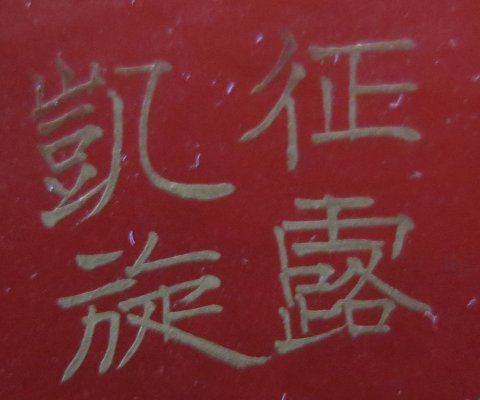 征露
凱旋